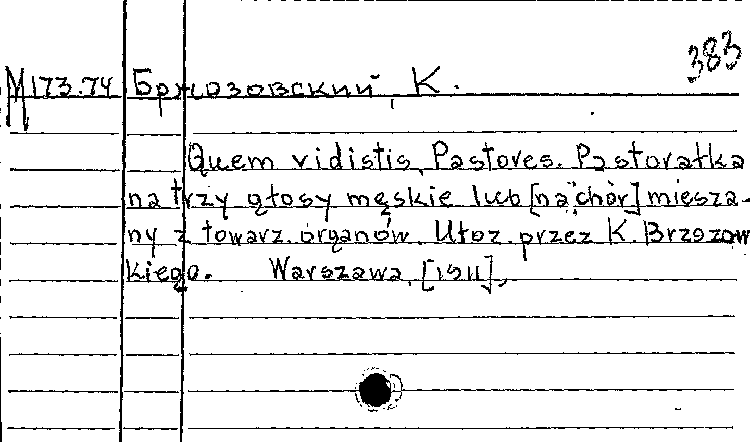 383
M173.74 Бржозовский, К.
Quem vidistis, Pastores. Pastorałka
na trzy głosy męskie lub [na chór] miesza-
ny z towarz. organów. Ułoz. przez K. Brzozow
kiego. Warszawa, [1911],